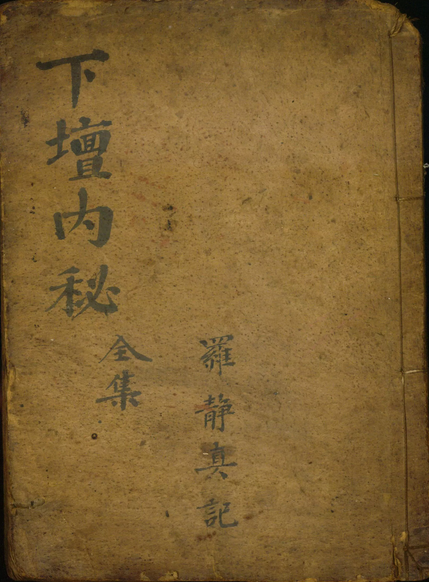 羅静真記
下壇内秘
全集